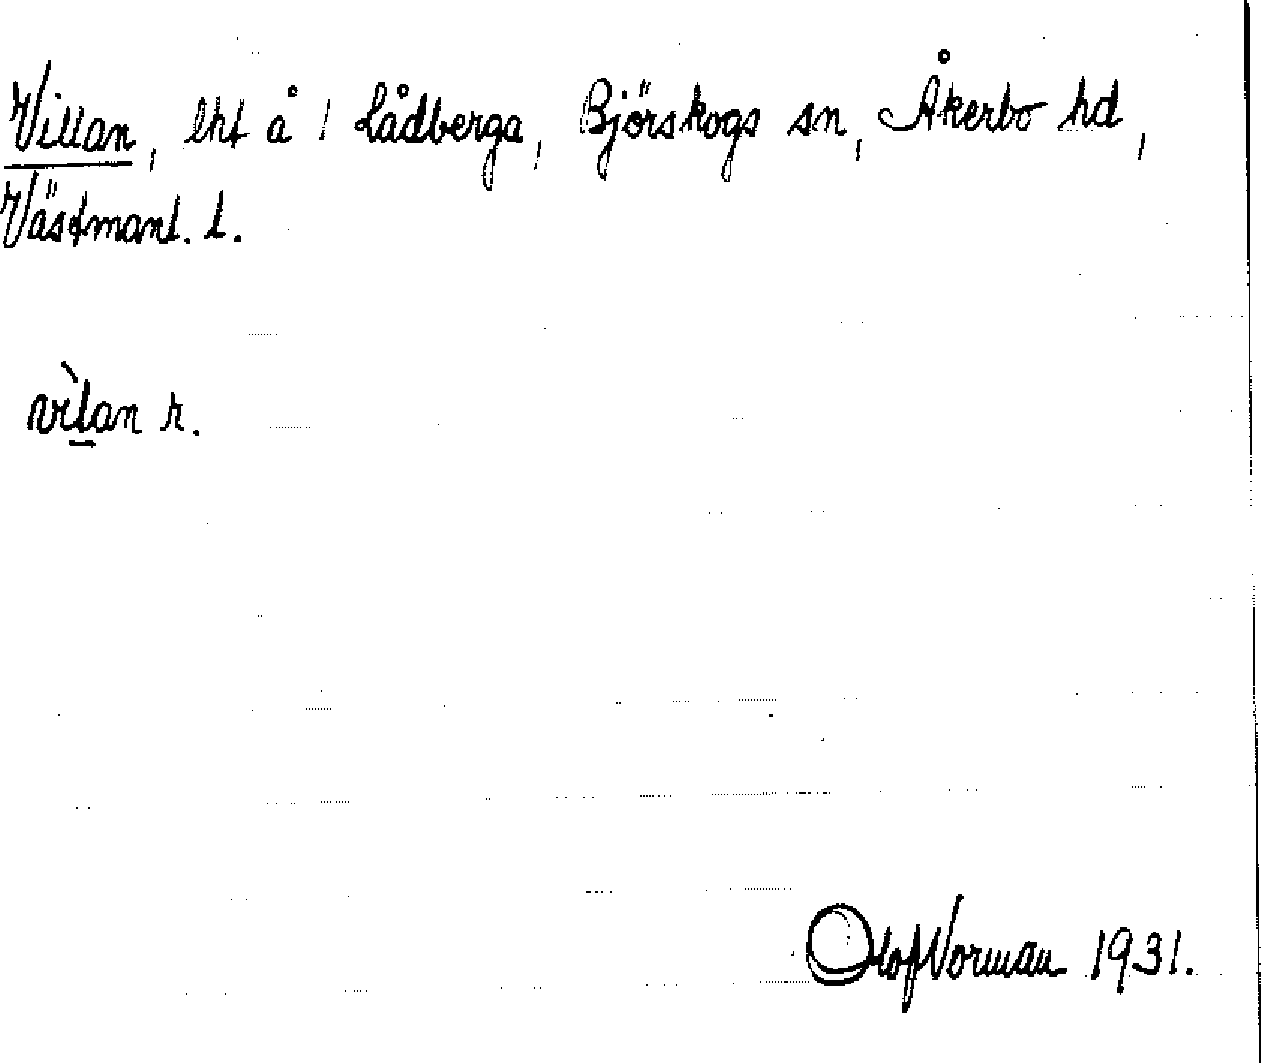 Villan, lht å 1 Lådberga, Björskogs sn, Åkerbo hd,
Västmanl. l.
vìlan r.
Olof Norman 1931.